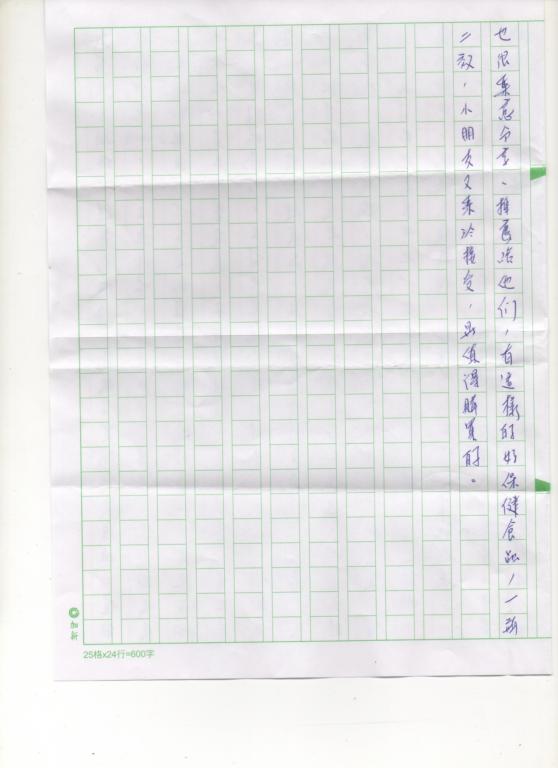 也很樂意分享、推薦給他們，有這樣的好保健食品，一顆
二效，小朋友又樂於接受，是值得購買的。
新晋
25格x24行=600字